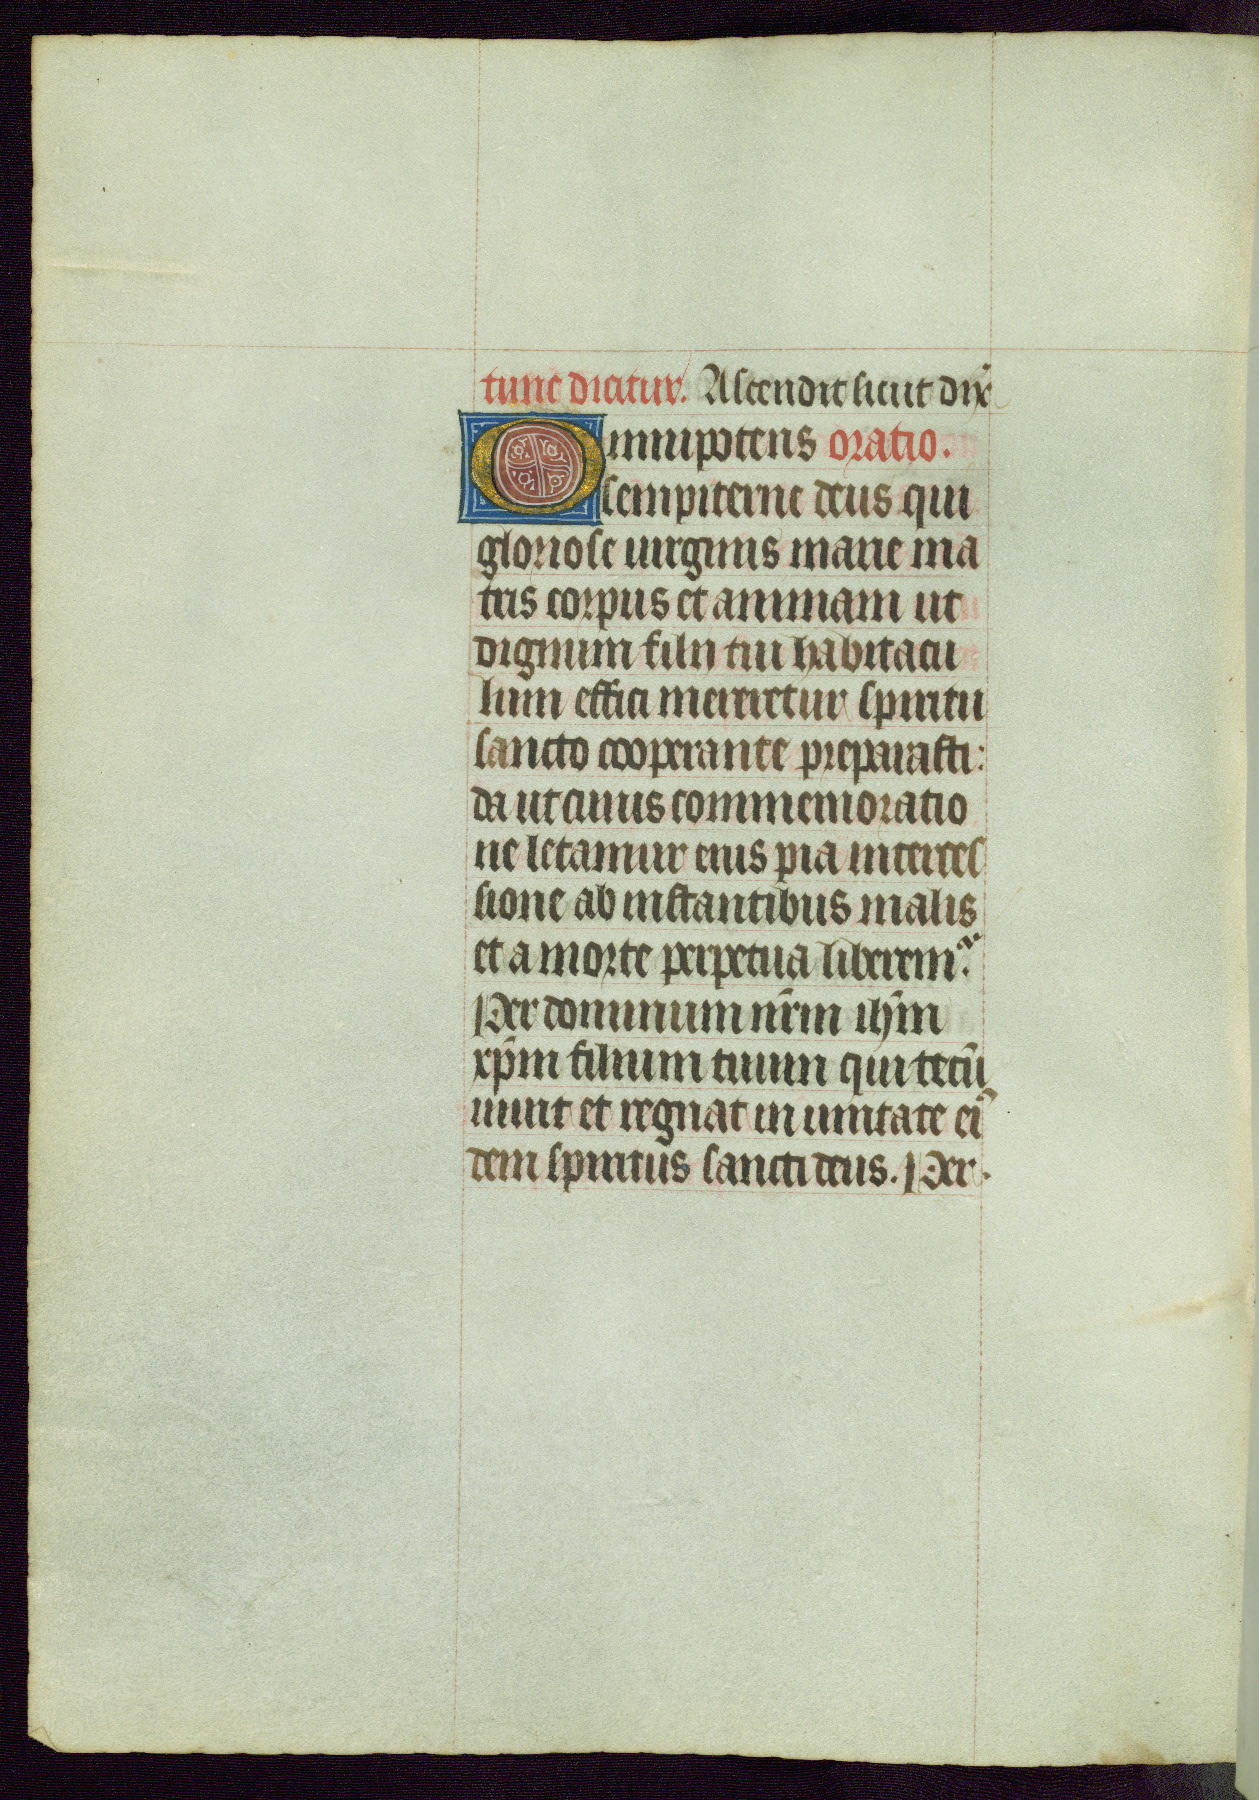 tunc dicitur. Ascendit sicut dix̄
Omnipotens oratio.
sempiterne deus qui
gloriose uirginis marie ma
tris corpus et animam ut
dignum filii tui habitacu
lum effici mereretur spiritu
sancto cooperante preparasti:
da ut cuius commemoratio
ne letamur eius pia interces
sione ab instantibus malis
et a morte perpetua liberem᷒.
Per dominum nr̄m ih̄m
xp̄m filium tuum qui tecū
uiuit et regnat in unitate ei᷒
dem spiritus sancti deus. Per.